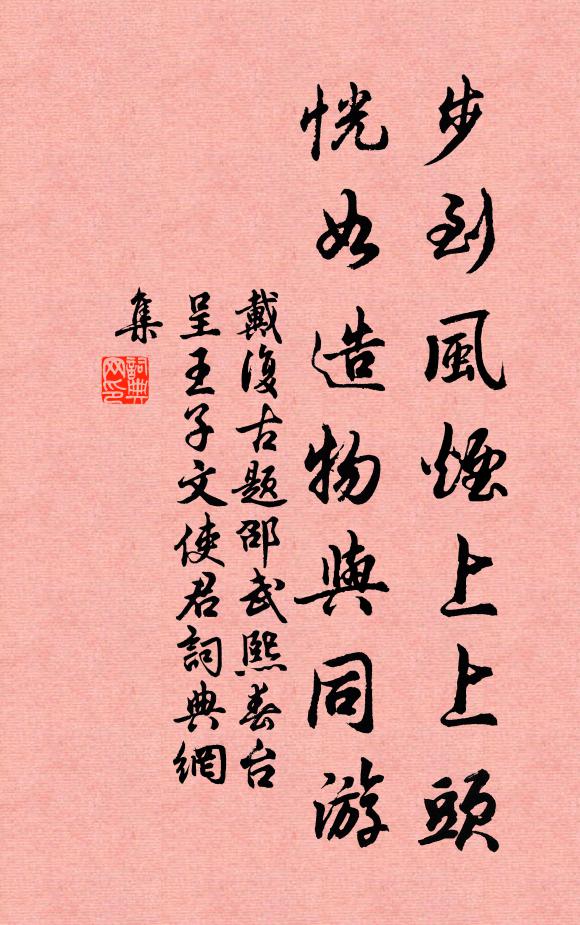 步到風煙上上頭
恍如造物與同游
戴復古題邵武熙春台
呈王子文使君詞典網
集
詞典网印